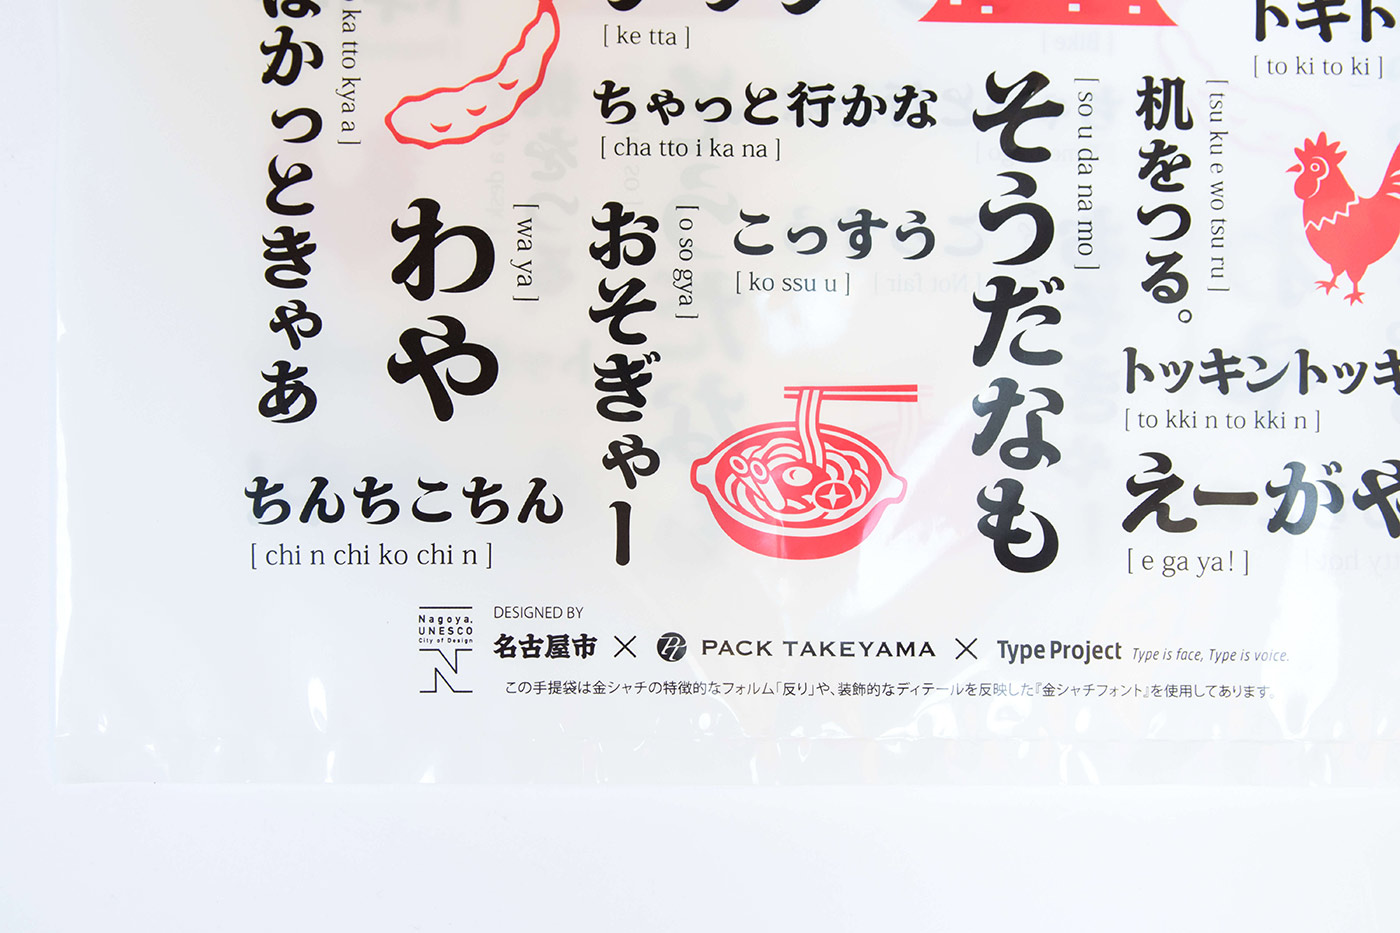 [ ke tta ]
トキト
[ to ki to ki ]
ほかっときゃあ
ka tto kya a ]
ちゃっと行かな
[ cha tto i ka na ]
そうだなも
[ so u da na mo ]
机をつる。
[ tsu ku e wo tsu ru ]
わや
[ wa ya ]
おそぎゃー
[ o so gya ]
こっすう
[ ko ssu u ]
トッキントッキ
[ to kki n to kki n ]
えーがや
[ e ga ya! ]
ちんちこちん
[ chi n chi ko chi n ]
Nagoya,
UNESCO
City of Design
N
DESIGNED BY
名古屋市 × PACK TAKEYAMA × Type Project Type is face, Type is voice.
この手提袋は金シャチの特徴的なフォルム「反り」や、装飾的なディテールを反映した『金シャチフォント』を使用してあります。